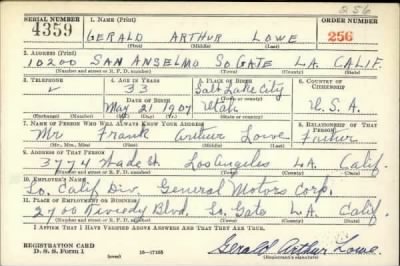 256
SERIAL NUMBER 1. NAME (Print) ORDER NUMBER
4359 GERALD ARTHUR LOWE 256
(First) (Middle) (Last)
2. ADDRESS (Print)
10200 SAN ANSELMO SO GATE L.A. CALIF.
(Number and street or R. F. D. number) (Town) (County) (State)
3. TELEPHONE 4. AGE IN YEARS 5. PLACE OF BIRTH 6. COUNTRY OF CITIZENSHIP
33 Salt Lake City
DATE OF BIRTH (Town or county)
May 21 1907 Utah U.S.A.
(Mo.) (Day) (Yr.) (State or country)
7. NAME OF PERSON WHO WILL ALWAYS KNOW YOUR ADDRESS 8. RELATIONSHIP OF THAT PERSON
Mr Frank Arthur Lowe Father
(Mr., Mrs., Miss) (First) (Middle) (Last)
9. ADDRESS OF THAT PERSON
3774 Wade St. Los Angeles L.A. Calif.
(Number and street or R. F. D. number) (Town) (County) (State)
10. EMPLOYER'S NAME
So. Calif Div. General Motors Corp.
11. PLACE OF EMPLOYMENT OR BUSINESS
2700 Blvd. So. Gate L.A. Calif.
(Number and street or R. F. D. number) (Town) (County) (State)
I AFFIRM THAT I HAVE VERIFIED ABOVE ANSWERS AND THAT THEY ARE TRUE.
REGISTRATION CARD
D. S. S. Form 1 16—17105 Gerald Arthur Lowe.
(over) (Registrant's signature)